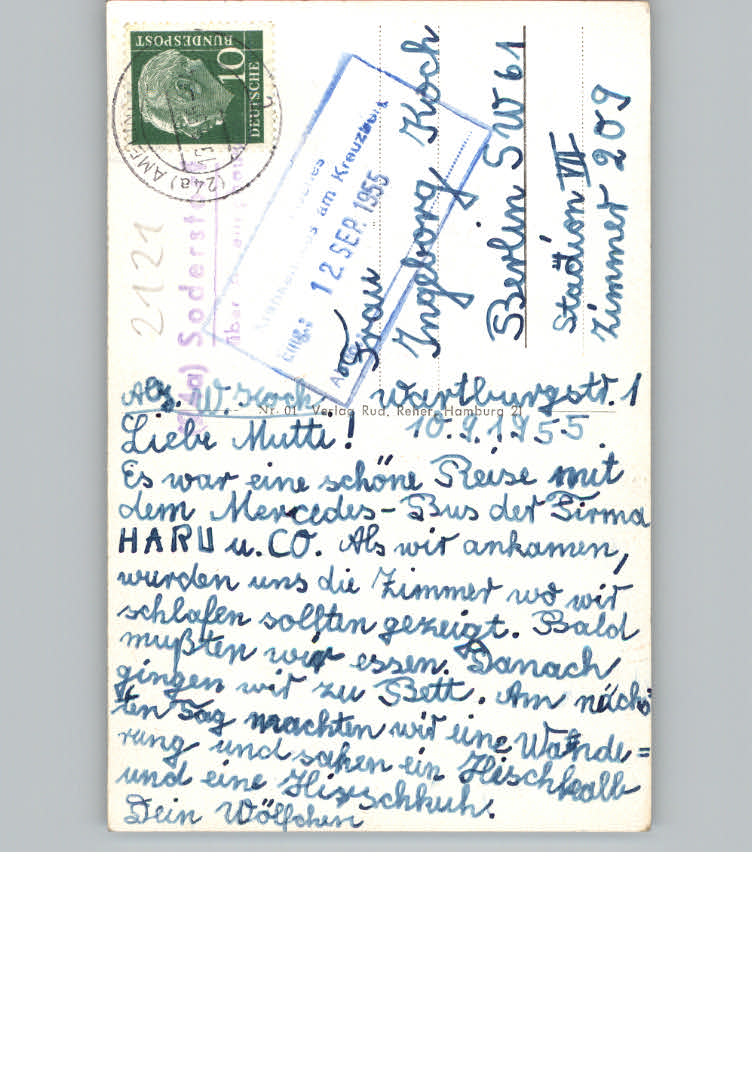 DEUTSCHE
BUNDESPOST
10
(24a)
2121
12. SEP. 1955
am Kreuzberg
Eing.:
Frau
Ingeborg Koch
Berlin SW 61
Station VII
Zimmer 209
Abs. W. Koch. Wartburgstr. 1
Nr. 01 Verlag Rud. Reher, Hamburg 21
Liebe Mutti! 10.9.1955.
Es war eine schöne Reise mit
dem Mercedes-Bus der Firma
HARU u. CO. Als wir ankamen,
wurden uns die Zimmer wo wir
schlafen sollten gezeigt. Bald
mußten wir essen. Danach
gingen wir zu Bett. Am nächs
ten Tag machten wir eine Wande=
rung und sahen ein Hischkalb
und eine Hirschkuh.
Dein Wölfchen